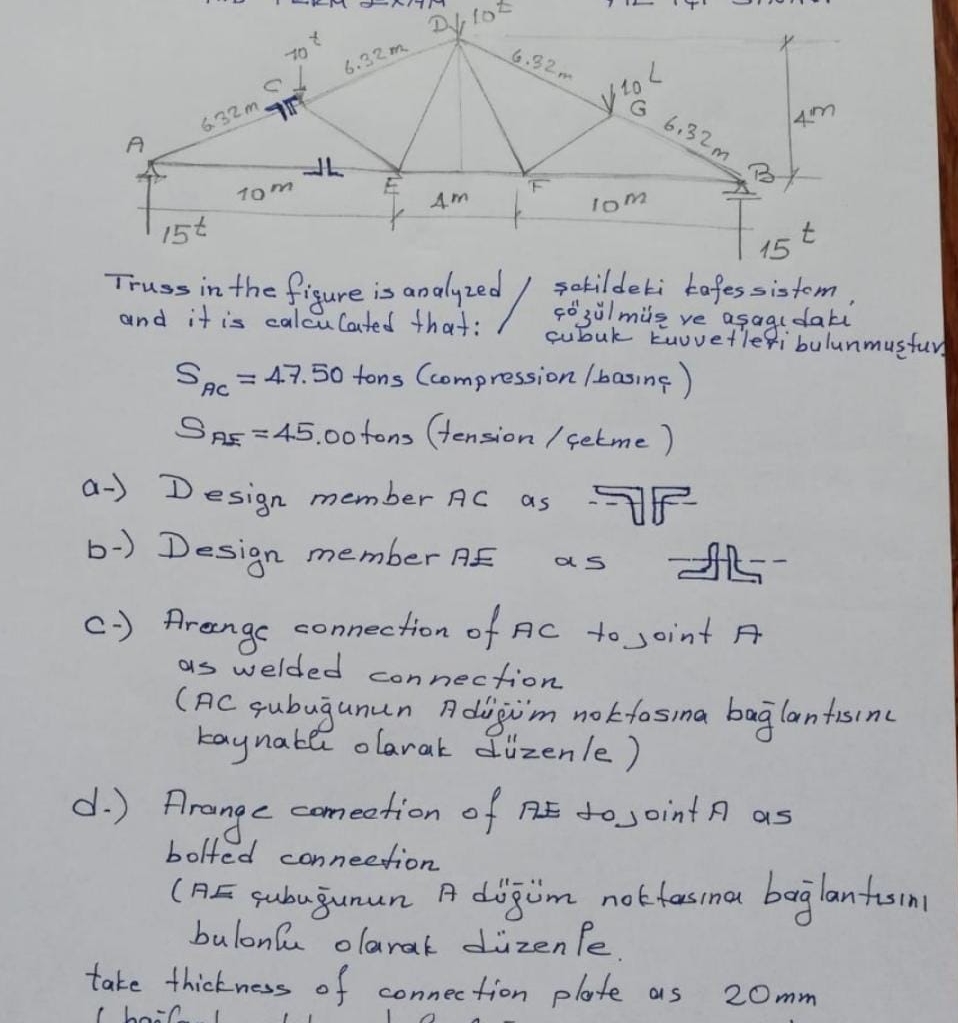 D 10t
10t
C
6.32m
6.32m
10t
G
6.32m
6.32m
4m
A
B
E
F
10m
4m
10m
15t
15t
Truss in the figure is analyzed / şekildeki kafes sistem,
and it is calculated that: / çözülmüş ve aşagıdaki
çubuk kuvvetleri bulunmuştur.
SAC = 47.50 tons (compression/basınç)
SAE = 45.00 tons (tension/çekme)
a-) Design member AC as
b-) Design member AE as
c-) Arange connection of AC to joint A
as welded connection
(AC çubuğunun A düğüm noktasına bağlantısını
kaynaklı olarak düzenle)
d-) Arange connection of AE to joint A as
bolted connection
(AE çubuğunun A düğüm noktasına bağlantısını
bulonlu olarak düzenle.
take thickness of connection plate as 20mm